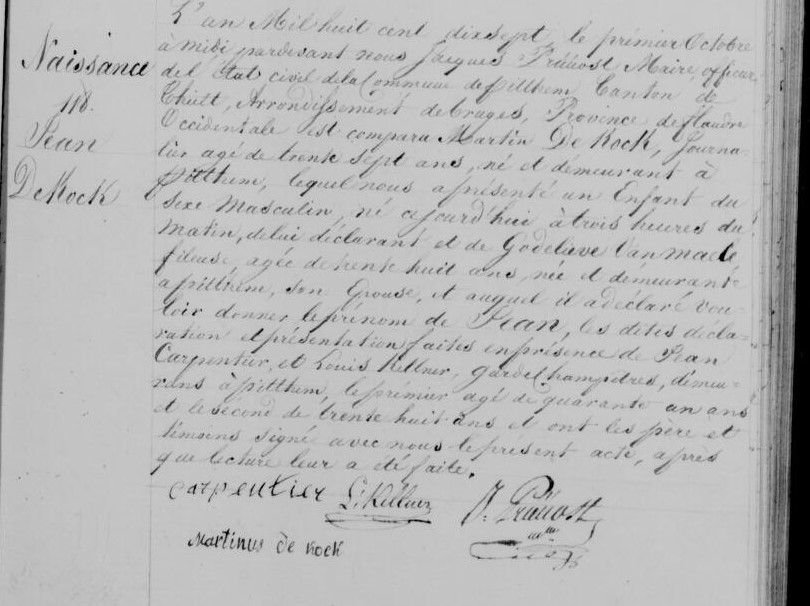 Naissance
118.
Jean
De Kock
L'an Mil huit cent dixsept le prémier Octobre
à midi pardevant nous Jacques Prüvost Maire, officier
del Etat civil dela Commune de pitthem Canton de
Thielt, Arrondissement de bruges, Province de flandre
Occidentale est comparu Martin De Kock, Journa-
lier agé de trente sept ans, né et démeurant à
pitthem, lequel nous a présenté un Enfant du
sexe Masculin, né cejourd'hui à trois heures du
Matin, delui déclarant et de Godelieve Van maele
fileuse, agée de trente huit ans, née et démeurante
a pitthem, son Epouse, et auquel il a déclaré vou-
loir donner le prénom de Jean, les dites décla-
ration et présentation faites en présence de Jean
Carpentier, et Louis Kellner, gardes Champetres, démeu-
rans à pitthem, le prémier agé de quarante un ans
et le second de trente huit ans et ont les père et
témoins signé avec nous le présent acte, après
que lecture leur a été faite.
Carpentier L: Kellner J. Prüvost
Martinus de Kock